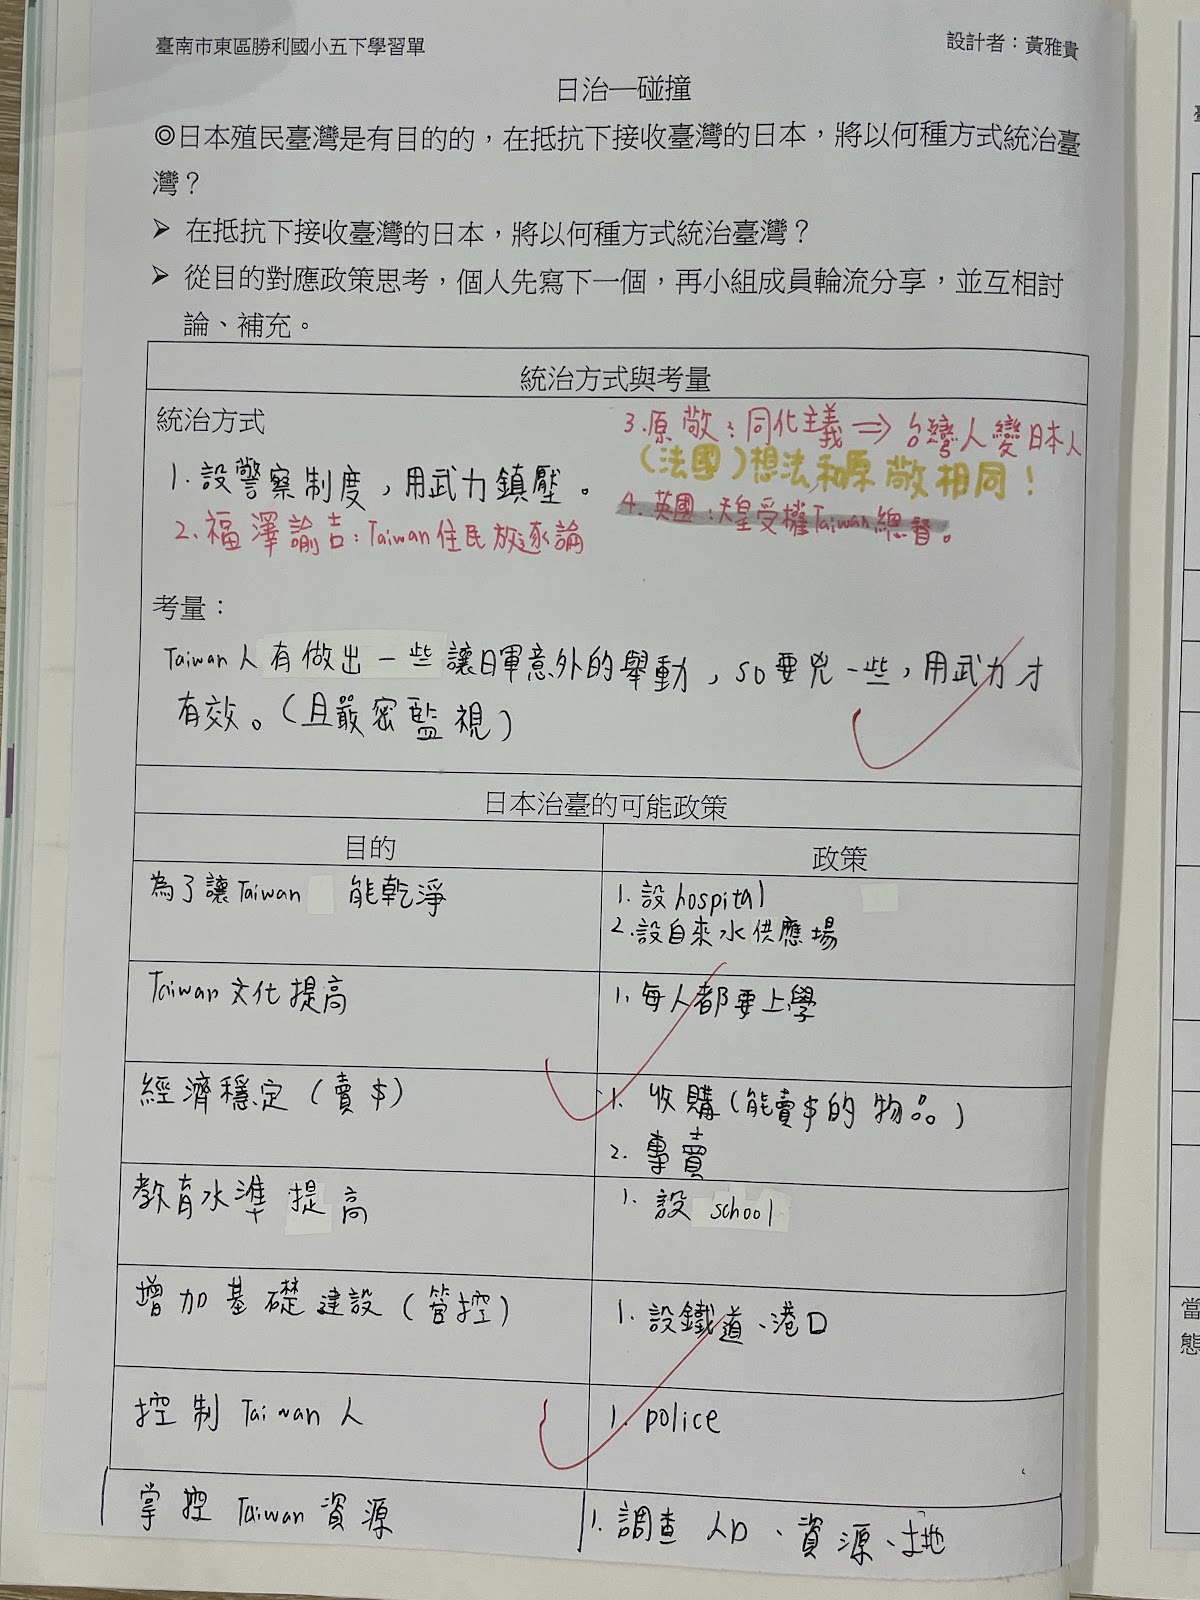 臺南市東區勝利國小五下學習單
設計者：黃雅貴
日治—碰撞
◎日本殖民臺灣是有目的的，在抵抗下接收臺灣的日本，將以何種方式統治臺
灣？
➢ 在抵抗下接收臺灣的日本，將以何種方式統治臺灣？
➢ 從目的對應政策思考，個人先寫下一個，再小組成員輪流分享，並互相討
論、補充。
統治方式與考量
統治方式
1.設警察制度，用武力鎮壓。
2.福澤諭吉：Taiwan住民放逐論
3.原敬：同化主義⇒台灣人變日本人
（法國）想法和原敬相同！
4.英國：天皇受權Taiwan總督。
考量：
Taiwan人有做出一些讓日軍意外的舉動，so要兇一些，用武力才
有效。（且嚴密監視）
日本治臺的可能政策
目的
政策
為了讓Taiwan 能乾淨
1.設hospital
2.設自來水供應場
Taiwan文化提高
1.每人都要上學
經濟穩定（賣$）
1. 收購（能賣$的物品）
2. 專賣
教育水準提高
1. 設 school
增加基礎建設（管控）
1. 設鐵道、港口
控制 Taiwan 人
1. police
掌控 Taiwan 資源
1. 調查人口、資源、土地
當
態